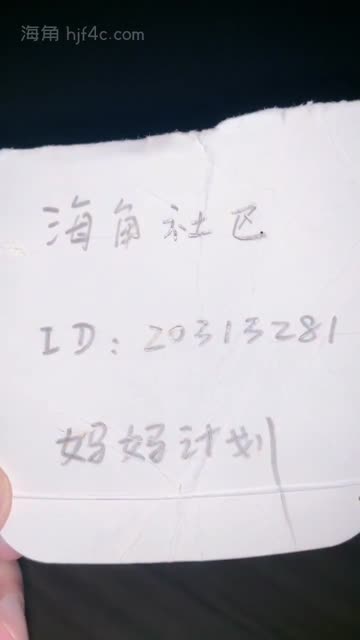 海角 hjf4c.com
海角社区
ID: 20313281
妈妈计划